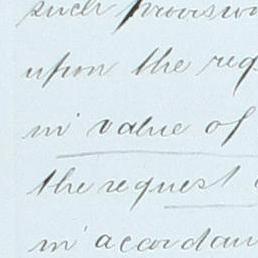 such provision
upon the req
in value of
the request
in accordan